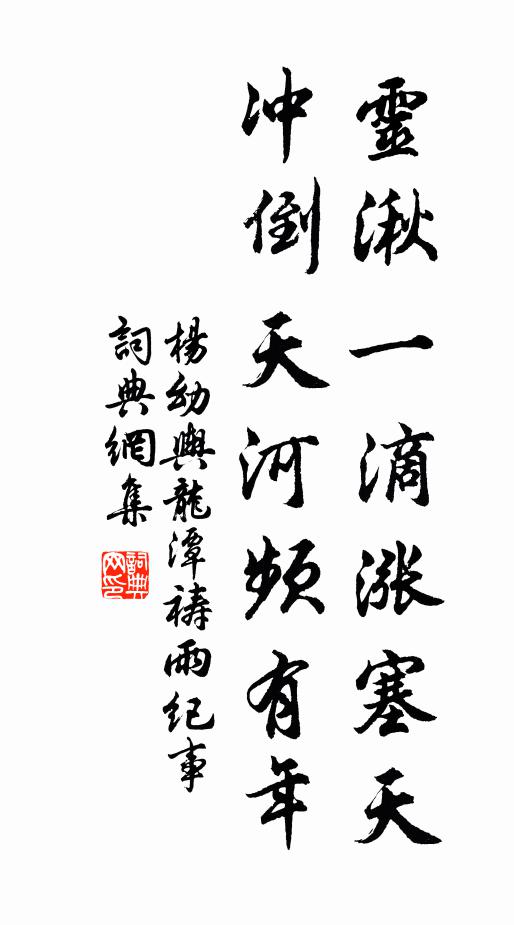 靈湫一滴漲塞天
冲倒天河頻有年
楊幼輿龍潭禱雨紀事
詞典網集
詞典
网印